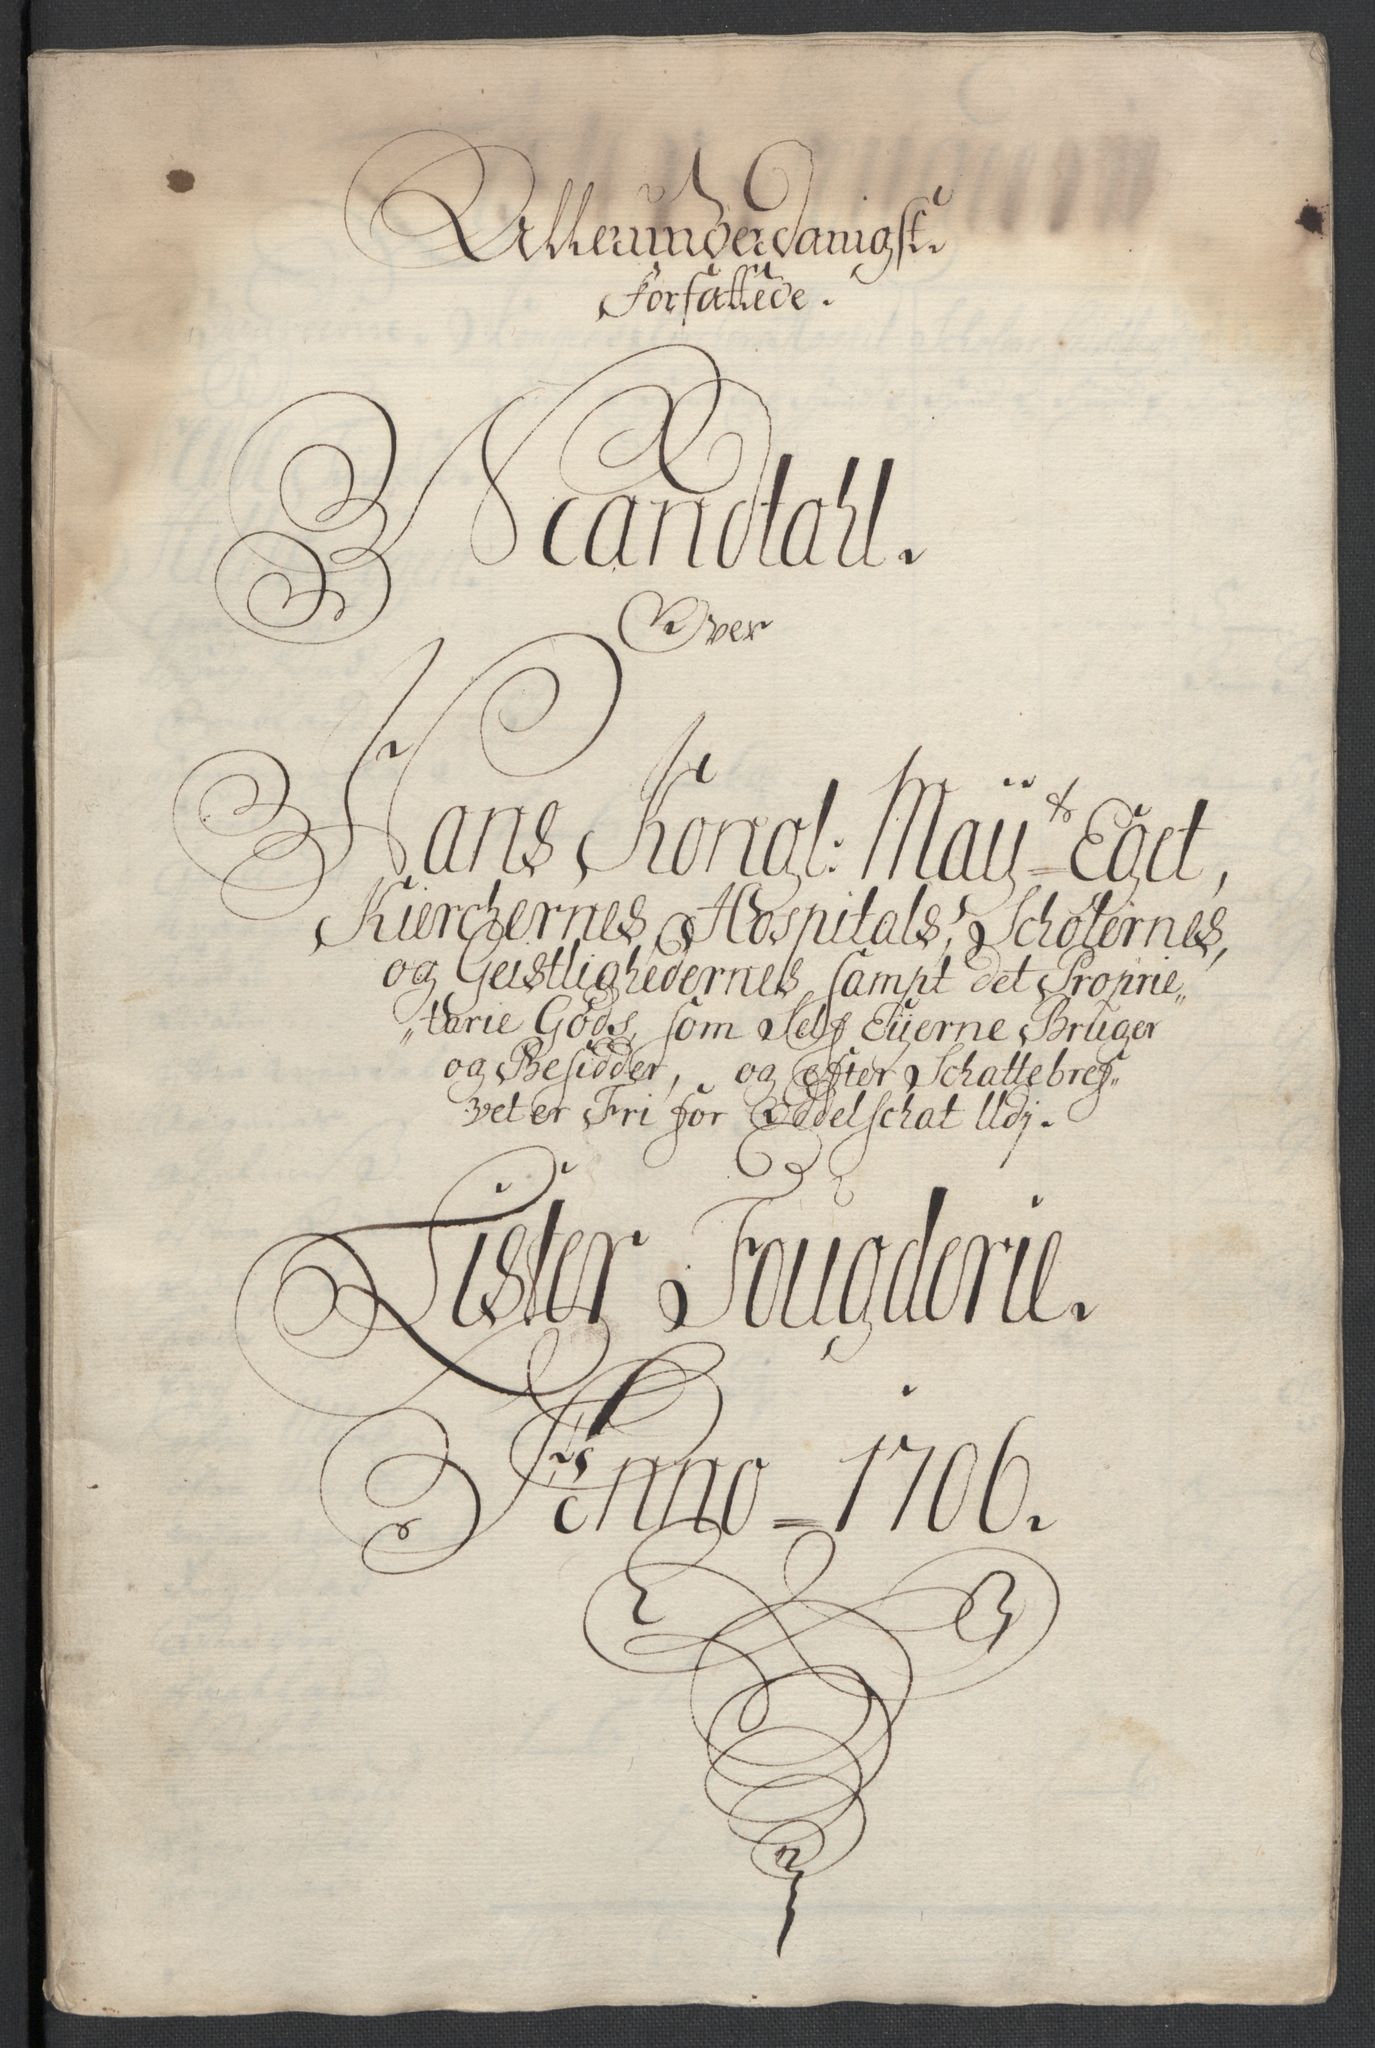 Allerunderdanigst.
Forfattede.
Mandtahl.
Over
Hans Kongl: May:ts Eget,
Kierchernes, Hospitals, Scholernes,
og Geistlighedernes, sampt det Proprie„
„tarie Gods, som Self Eyerne Bruger
og Besidder, og efter Schattebref„
vet er Fri for Oddelschat Udj.
Lister Fougderie.
Anno = 1706.